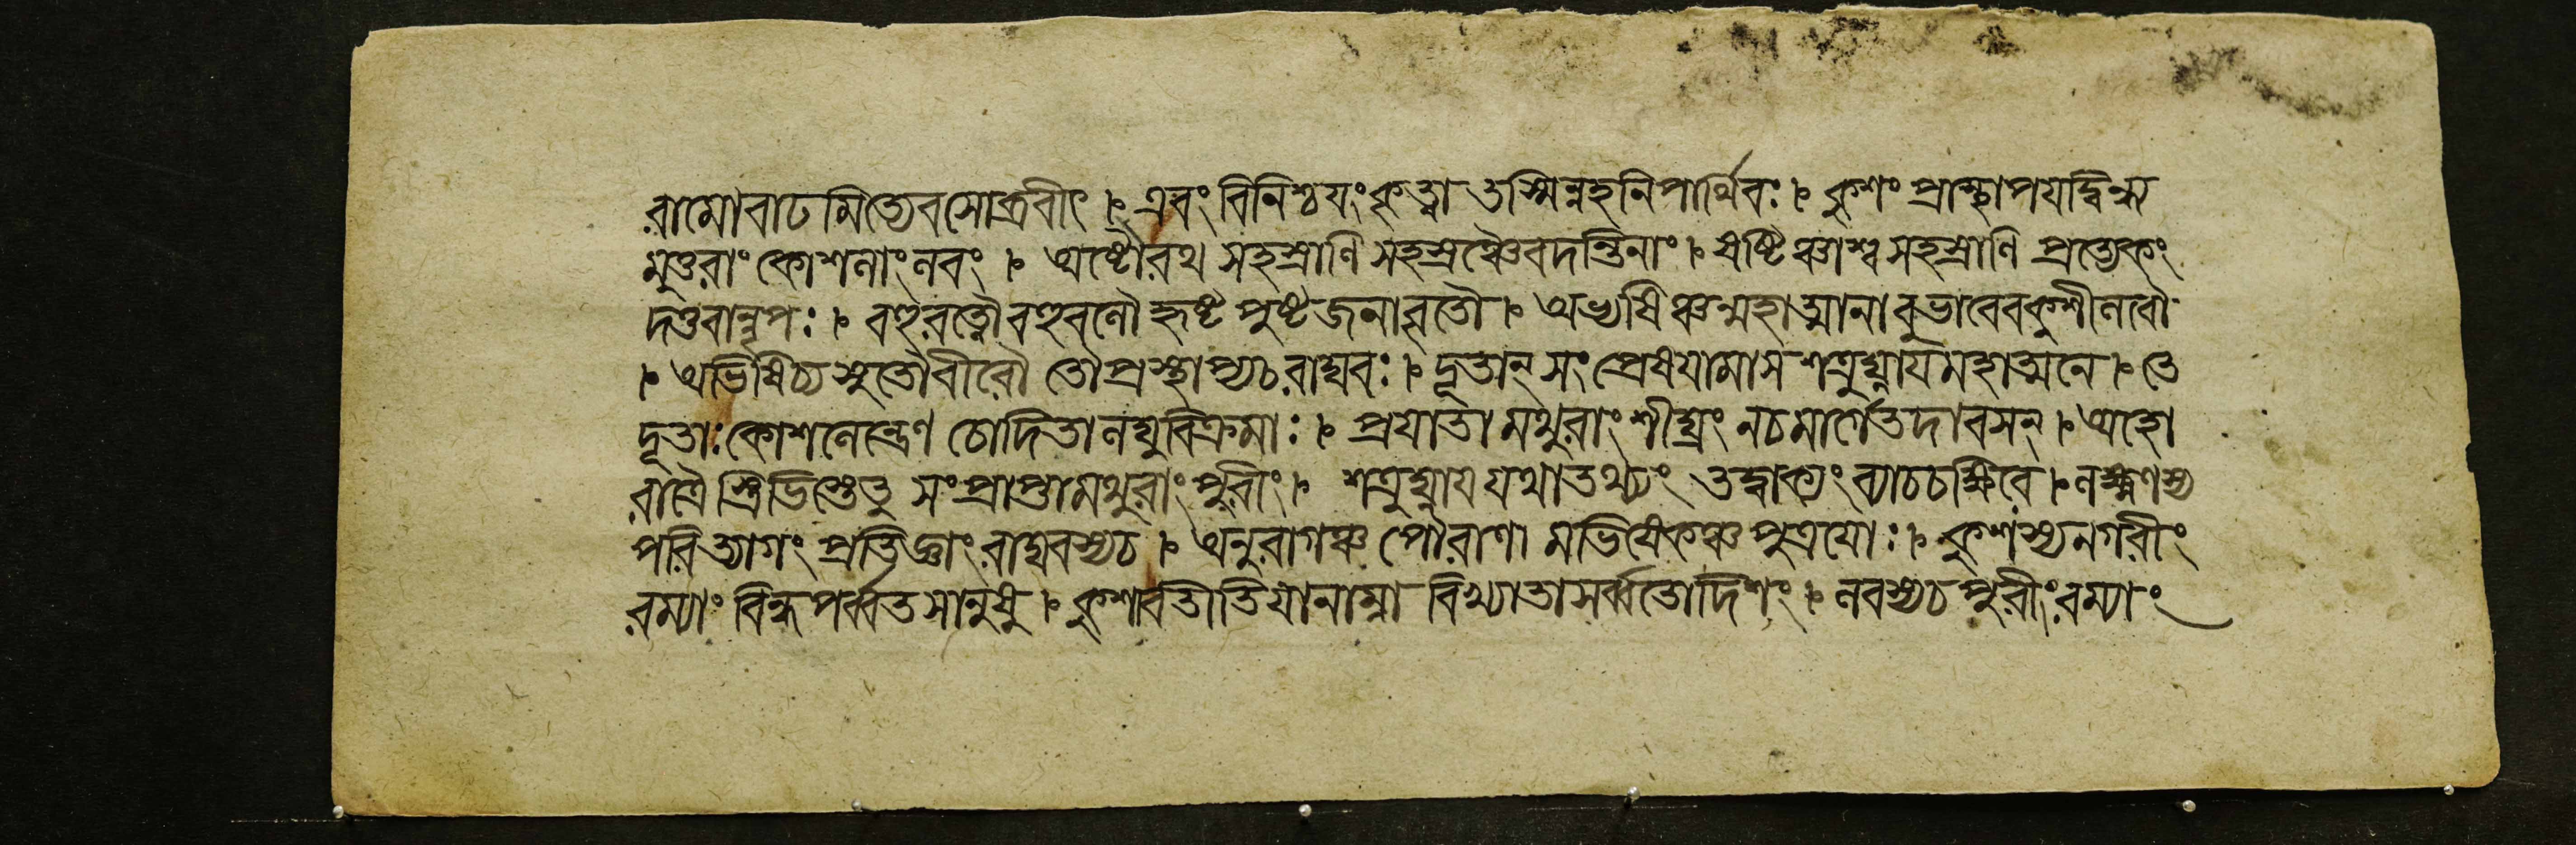 রামোবাঢমিত্যেবসোব্রবীৎ । এবং বিনিশ্চয়ংকৃত্বা তস্মিন্নহনিপার্থিবঃ । কুশং প্রাস্থাপয়দ্বিন্ধ্য
মুত্তরাং কোশলাংলবং । অষ্টৌরথ সহস্রাণি সহস্রঞ্চৈবদন্তিনাং । ষষ্টিঞ্চাশ্ব সহস্রাণি প্রত্যেকং
দত্তবান্নৃপঃ । বহুরত্নৌবহুবলৌ হৃষ্ট পুষ্টজনাবৃতৌ । অভ্যষিঞ্চন্মহাত্মানাবুভাবেবকুশীলবৌ
। অভিষিচ্য সুতৌবীরৌ তৌপ্রস্থাপ্যচরাঘবঃ । দূতান্ সংপ্রেষয়ামাস শত্রুঘ্নায়মহাত্মনে । তে
দূতাঃকোশলেন্দ্রেণ চোদিতালঘুবিক্রমাঃ । প্রয়াতা মথুরাংশীঘ্রং নচমার্গেতদাবসন্ । অহো
রাত্রৈ স্ত্রিভিস্তেতু সংপ্রাপ্তামথুরাংপুরীং । শত্রুঘ্নায়যথাতথ্যং তদ্বাক্যং ব্যাচচক্ষিরে । লক্ষ্মণস্য
পরিত্যাগং প্রতিজ্ঞাং রাঘবস্যচ । অনুরাগঞ্চ পৌরাণা মভিষেকঞ্চ পুত্রয়োঃ । কুশস্যনগরীং
রম্যাং বিন্ধ্যপর্ব্বতসানুষু । কুশাবতীতিয়ানাম্না বিখ্যাতাসর্ব্বতোদিশং । লবস্যচ পুরীংরম্যাং